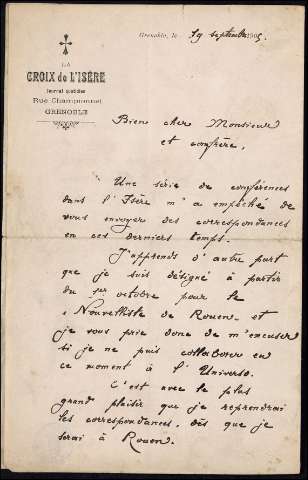 LA
CROIX de L'ISÈRE
Journal quotidien
Rue Championnet
GRENOBLE
Grenoble, le 19 septembre 1905.
Bien cher Monsieur
et confrère,
Une série de conférences
dans l'Isère m'a empêché de
vous envoyer des correspondances
en ces derniers temps.
J'apprends d'autre part
que je suis désigné à partir
du 1er octobre pour le
"Nouvelliste de Rouen" et
je vous prie donc de m'excuser
si je ne puis collaborer en
ce moment à l'Univers.
C'est avec le plus
grand plaisir que je reprendrai
les correspondances, dès que je
serai à Rouen.